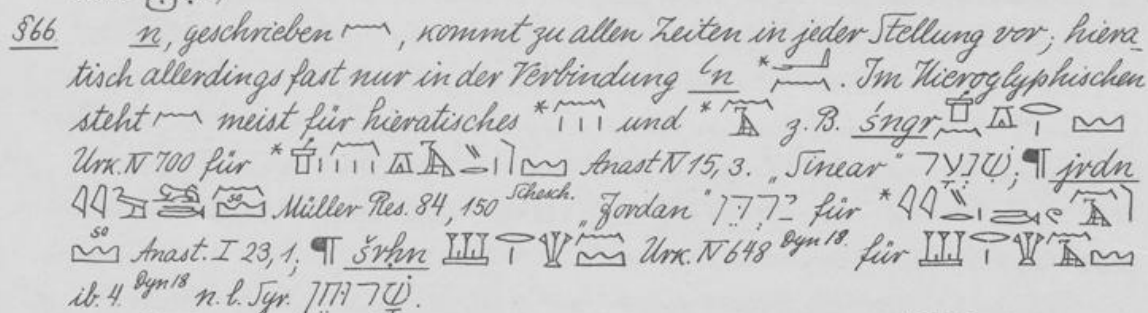 §66 n, geschrieben 𓈖, kommt zu allen Zeiten in jeder Stellung vor; hiera
tisch allerdings fast nur in der Verbindung ꜥn * 𓂝𓈖. Im Hieroglyphischen
steht 𓈖 meist für hieratisches * 𓈖𓏥 und * z. B. śngr
Urk. IV 700 für * Anast IV 15, 3. „Sinear“ שנער; ¶ jrdn
Müller Res. 84, 150 Schesch. „Jordan“ ירדן für *
so Anast. I 23, 1; ¶ šrḥn Urk. IV 648 Dyn 18. für
ib. 4. Dyn 18 n. l. Syr. שרחן.